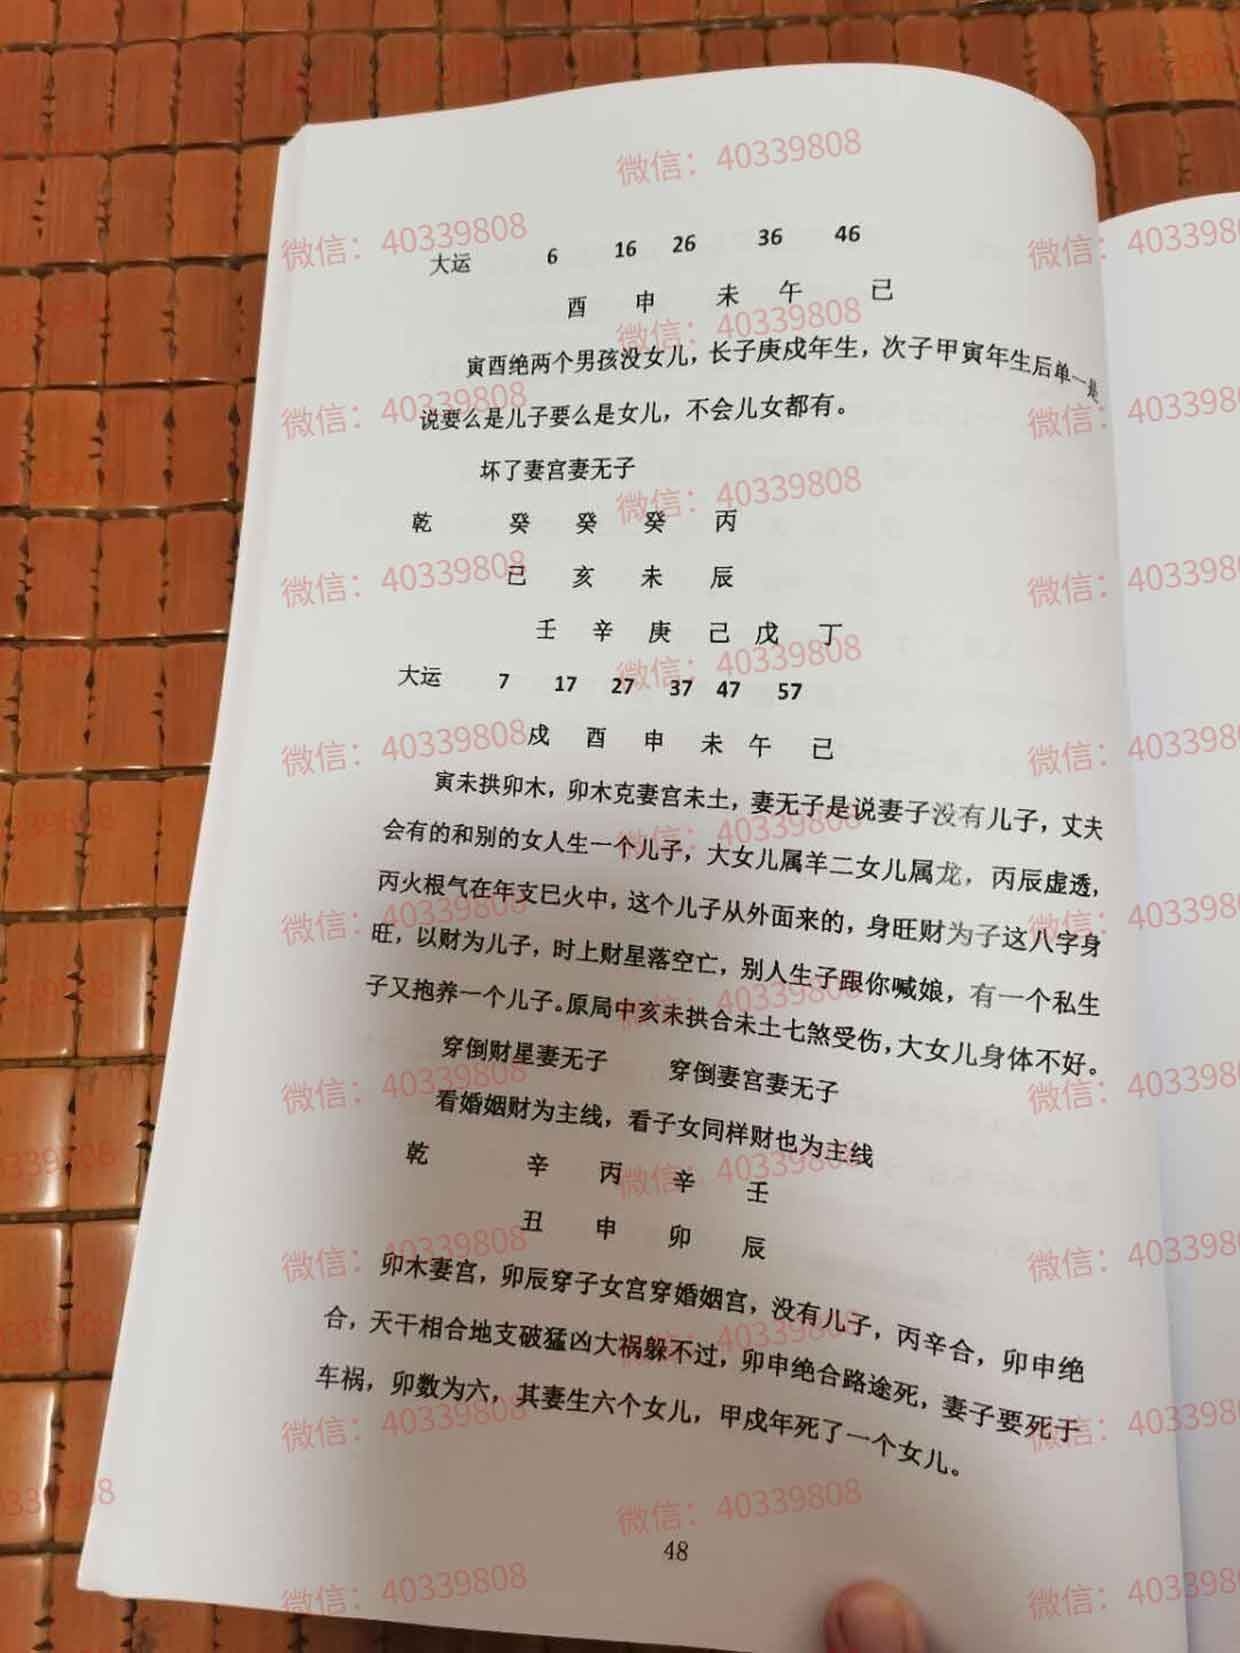 大运 6 16 26 36 46
酉 申 未 午 己
寅酉绝两个男孩没女儿，长子庚戌年生，次子甲寅年生后单一是
说要么是儿子要么是女儿，不会儿女都有。
坏了妻宫妻无子
乾 癸 癸 癸 丙
己 亥 未 辰
壬 辛 庚 己 戊 丁
大运 7 17 27 37 47 57
戌 酉 申 未 午 己
寅未拱卯木，卯木克妻宫未土，妻无子是说妻子没有儿子，丈夫
会有的和别的女人生一个儿子，大女儿属羊二女儿属龙，丙辰虚透，
丙火根气在年支巳火中，这个儿子从外面来的，身旺财为子这八字身
旺，以财为儿子，时上财星落空亡，别人生子跟你喊娘，有一个私生
子又抱养一个儿子。原局中亥未拱合未土七煞受伤，大女儿身体不好。
穿倒财星妻无子 穿倒妻宫妻无子
看婚姻财为主线，看子女同样财也为主线
乾 辛 丙 辛 壬
丑 申 卯 辰
卯木妻宫，卯辰穿子女宫穿婚姻宫，没有儿子，丙辛合，卯申绝
合，天干相合地支破猛凶大祸躲不过，卯申绝合路途死，妻子要死于
车祸，卯数为六，其妻生六个女儿，甲戌年死了一个女儿。
48
微信：40339808